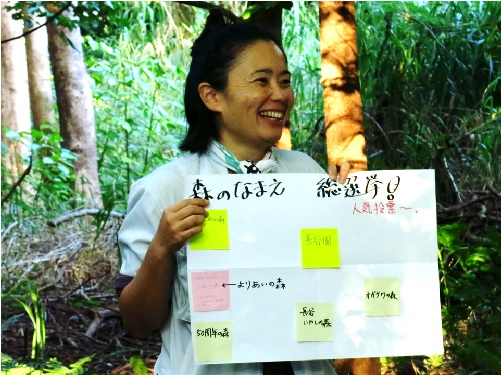 森のなまえ 総選挙!
人気投票〜。
長谷園
←よりあいの森
オガワの森
50周年の森
長谷
いやしの森